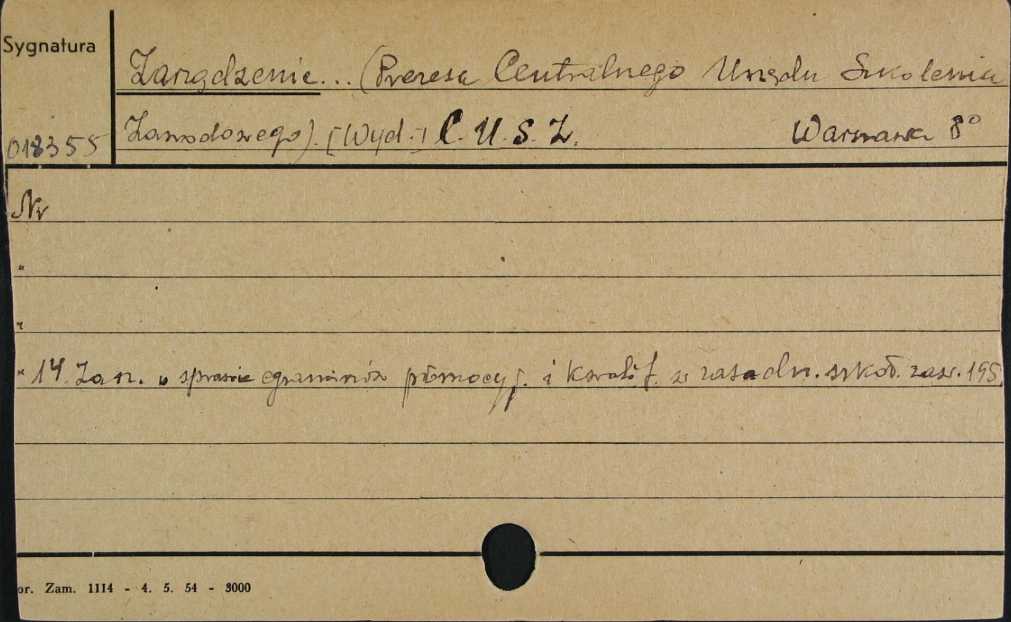 Sygnatura
Zarządzenie... (Prezesa Centralnego Urzędu Szkolenia
018355 Zawodowego). [Wyd.:] C. U. S. Z. Warszawa 8°
Nr
"
"
" 14. Zarz. w sprawie egzaminów i kwalif. w zasadn. szkoł. zaw. 195
or. Zam. 1114 - 4. 5. 54 - 3000